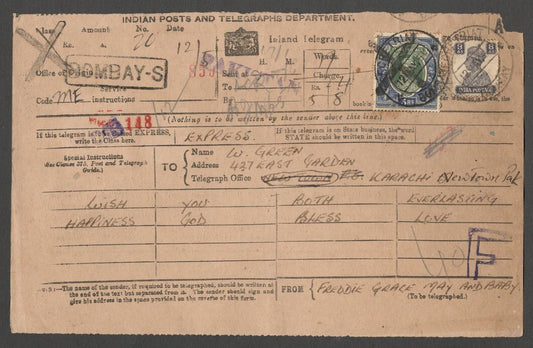 INDIAN POSTS AND TELEGRAPHS DEPARTMENT.
Class Amount No. Date Inland Telegram
Rs. A. 20 12/1 H. M. 17/1 Words.
Office of Origin BOMBAY-S Sent at Charge.
Service To Rs. A.
Code ME instructions By 5 8
INDIA POSTAGE
(Nothing is to be written by the sender above this line.)
148
If this telegram is to be classed EXPRESS, write the Class here. EXPRESS. If this telegram is on State business, the word STATE should be written in this space.
Special Instructions
(See Clause 375, Post and Telegraph Guide.)
TO
Name W. GREEN
Address 427 EAST GARDEN
Telegraph Office NEW TOWN P.O. KARACHI Newtown Pak
WISH YOU BOTH EVERLASTING
HAPPINESS GOD BLESS LOVE
F
N.B:—The name of the sender, if required to be telegraphed, should be written at the end of the text but separated from it. The sender should sign and give his address in the space provided on the reverse of this form.
FROM FREDDIE GRACE MAY AND BABY.
(To be telegraphed.)